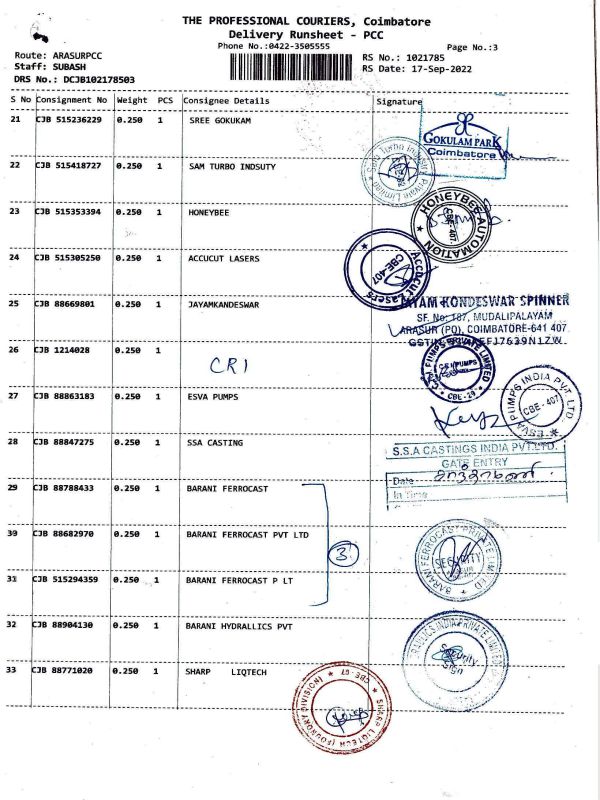 THE PROFESSIONAL COURIERS, Coimbatore
Delivery Runsheet - PCC
Phone No.:0422-3505555
Page No.:3
Route: ARASURPCC
Staff: SUBASH
DRS No.: DCJB102178503
RS No.: 1021785
RS Date: 17-Sep-2022
S No Consignment No Weight PCS Consignee Details Signature
21 CJB 515236229 0.250 1 SREE GOKUKAM
GOKULAM PARK
Coimbatore
22 CJB 515418727 0.250 1 SAM TURBO INDSUTY
Sam Turbo Industry Private Limited
23 CJB 515353394 0.250 1 HONEYBEE
HONEYBEE AUTOMATION
CBE-407
24 CJB 515305250 0.250 1 ACCUCUT LASERS
Accucut Lasers
CBE-407
25 CJB 88669801 0.250 1 JAYAMKANDESWAR
JAYAM KONDESWAR SPINNER
SF. No: 187, MUDALIPALAYAM
ARASUR (PO), COIMBATORE-641 407
26 CJB 1214028 0.250 1
CRI
C.R.I. PUMPS PRIVATE LIMITED
C.R.I PUMPS
CBE-29
27 CJB 88863183 0.250 1 ESVA PUMPS
ESVA PUMPS INDIA PVT. LTD.
CBE-407
28 CJB 88847275 0.250 1 SSA CASTING
S.S.A CASTINGS INDIA PVT.LTD.
GATE ENTRY
Date
In Time
29 CJB 88788433 0.250 1 BARANI FERROCAST
30 CJB 88682970 0.250 1 BARANI FERROCAST PVT LTD
3
BARANI FERROCAST PRIVATE LIMITED
SECURITY
31 CJB 515294359 0.250 1 BARANI FERROCAST P LT
32 CJB 88904130 0.250 1 BARANI HYDRALLICS PVT
INDIA PRIVATE LIMITED
Security
Sign
33 CJB 88771020 0.250 1 SHARP LIQTECH
SHARP LIQTECH (FOUNDRY DIVISION)
CBE-07